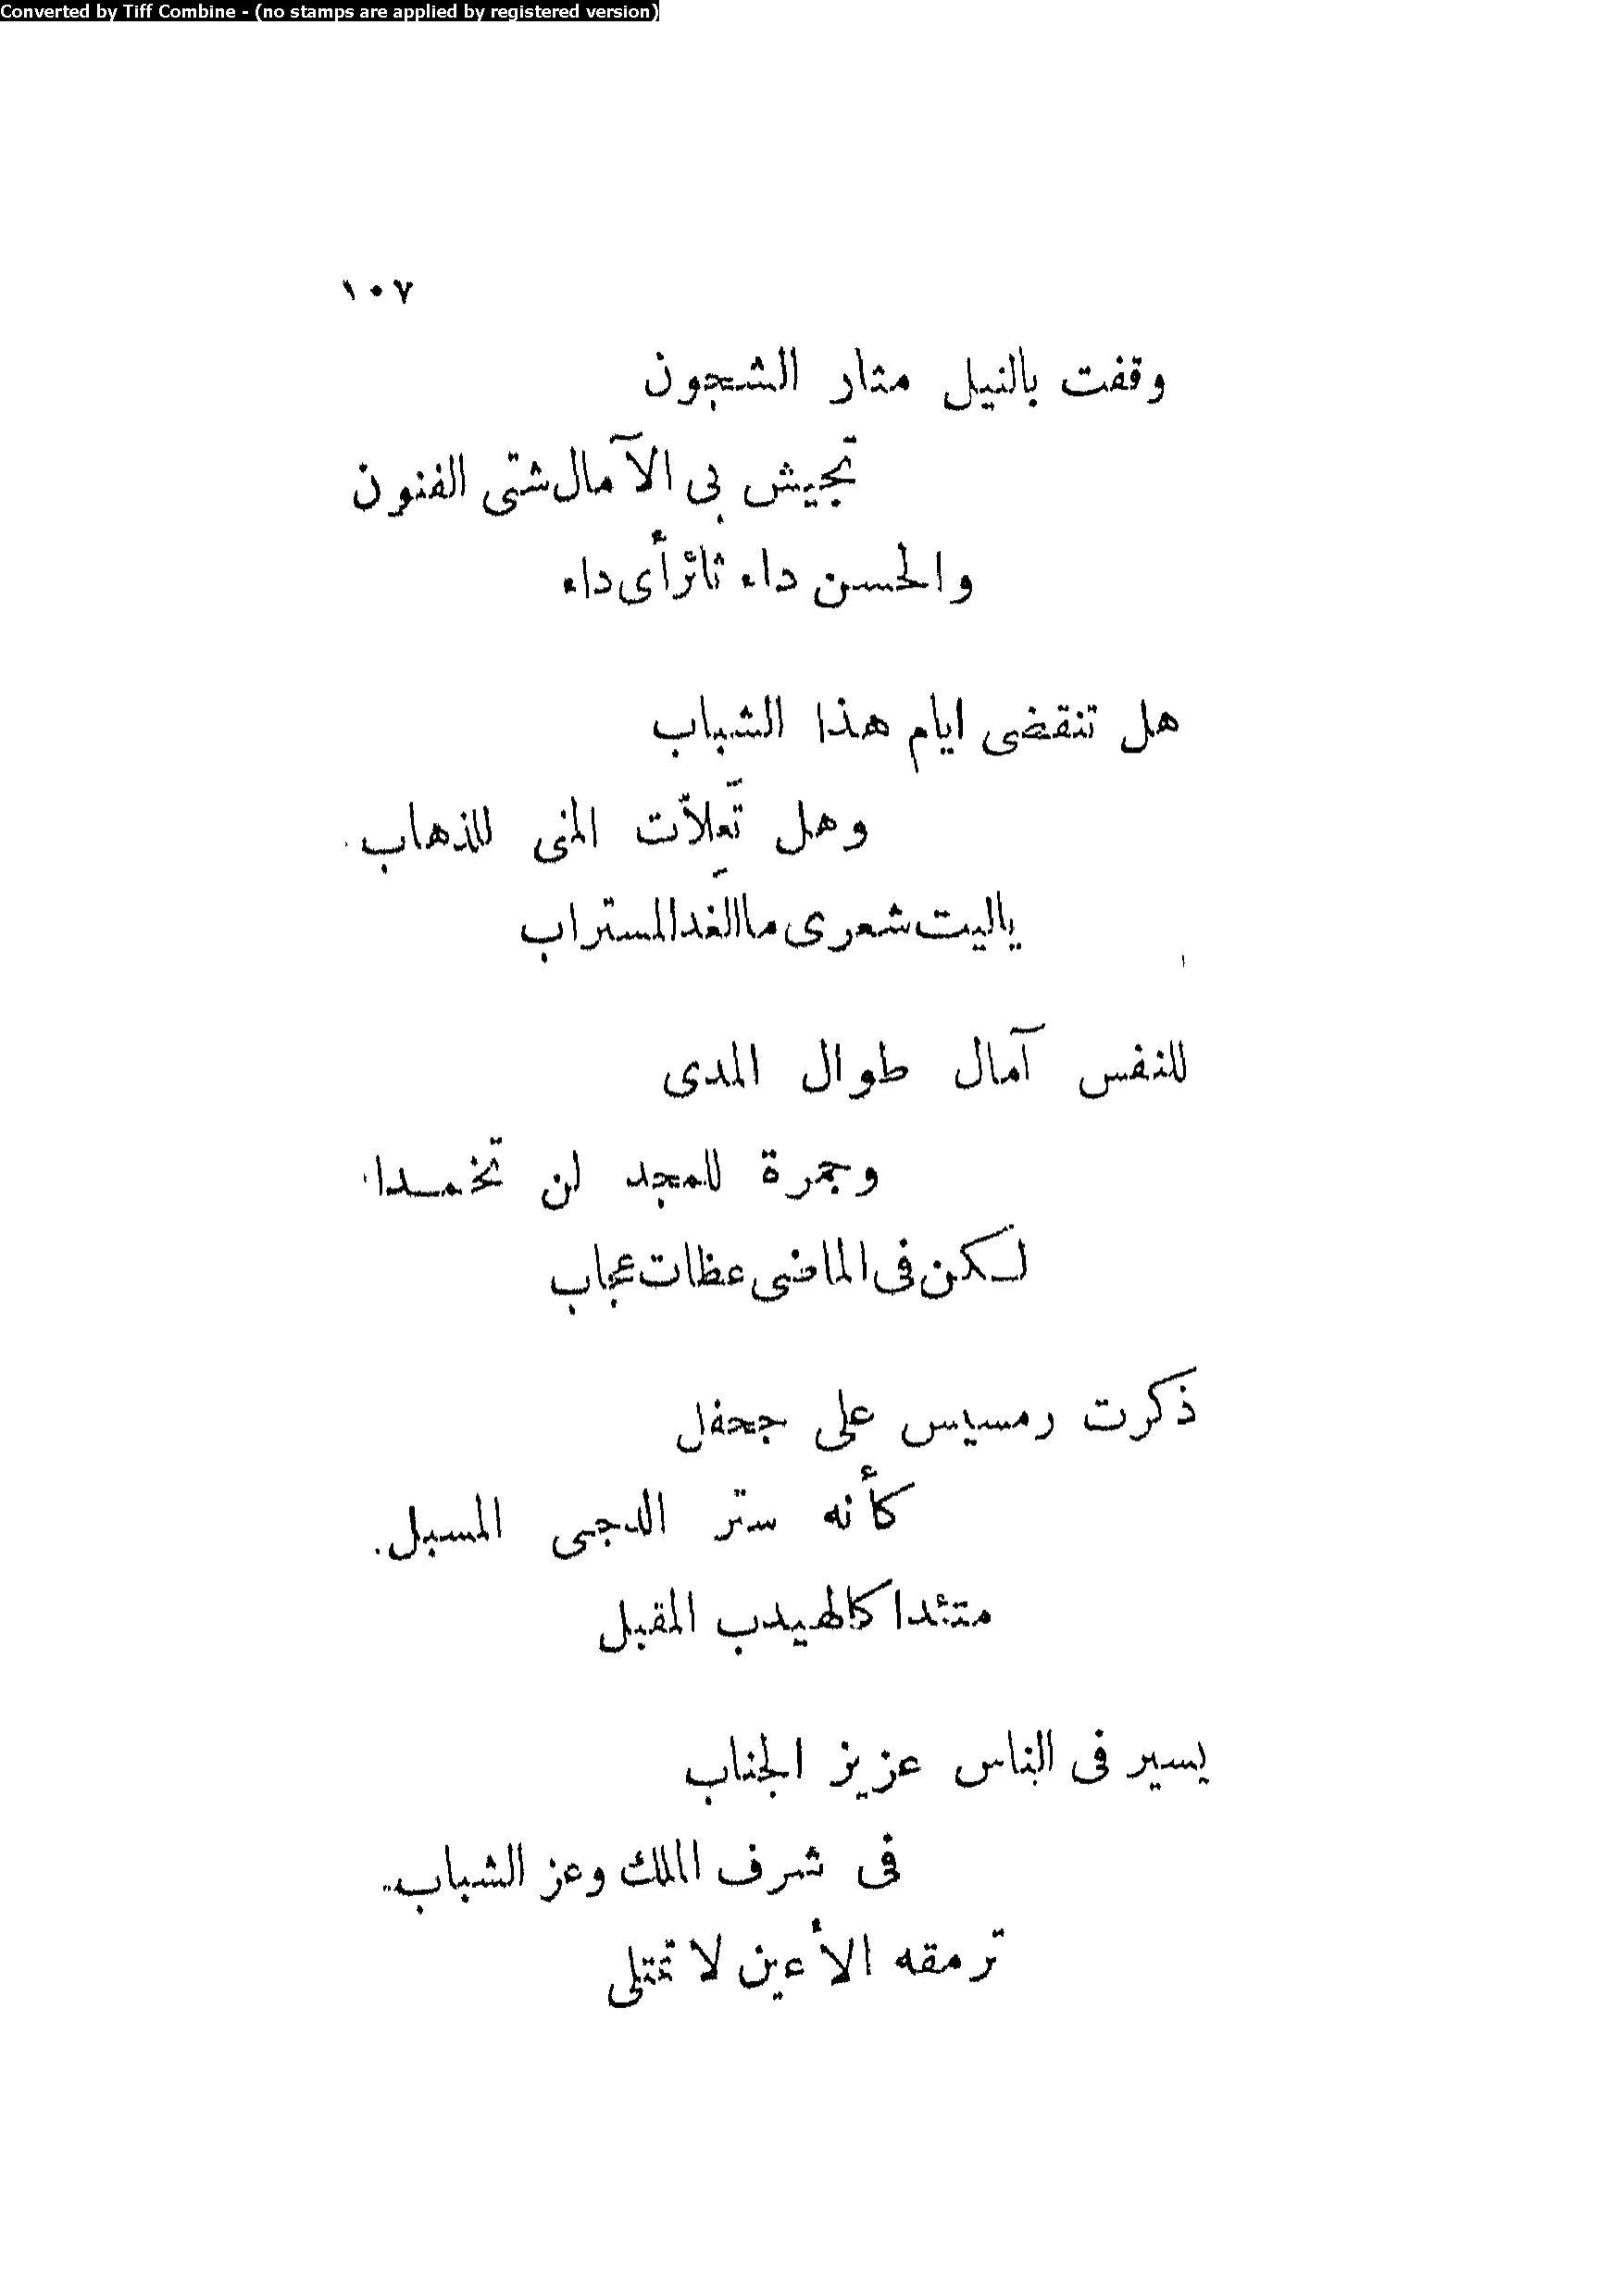 Converted by Tiff Combine - (no stamps are applied by registered version)
١٠٧
وقفت بالنيل مثار الشجون
تجيش بى الآمال شتى الفنون
والحسن داء ثائر أى داء
هل تنقضى ايام هذا الشباب
وهل تَعِلاّت المنى للذهاب
ياليت شعرى ما الغَد المستراب
للنفس آمال طوال المدى
وجمرة للمجد لن تخمدا
لكن فى الماضى عظات عجاب
ذكرت رمسيس على جحفل
كأنه ستر الدجى المسبل.
متئدا كالهيدب المقبل
يسير فى الناس عزيز الجناب
فى شرف الملك وعز الشباب
ترمقه الأعين لا تمتلى